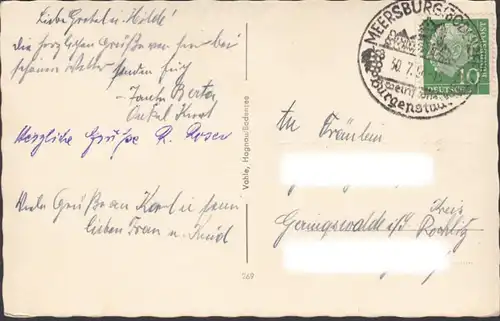 Liebe Gretel u. Hilde!
die herzlichen Grüße von hier bei
schönem Wetter senden Euch
- Tante Berta
Onkel Knut
Herzliche Grüße R. Roser
Viele Grüße an Karl
lieben Frau u. Kind
Vahle, Hagnau/Bodensee
269
MEERSBURG (BODENSEE)
10.7.5
DEUTSCHE BUNDESPOST
10
An Fräulein
Geringswalde i/S
Kreis
Rochlitz